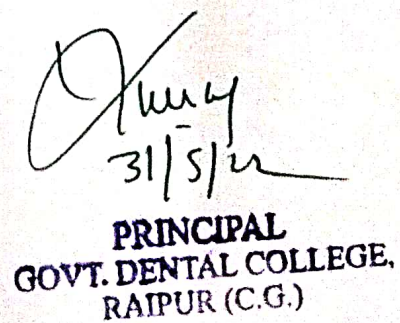 31/5/22
PRINCIPAL
GOVT. DENTAL COLLEGE,
RAIPUR (C.G.)